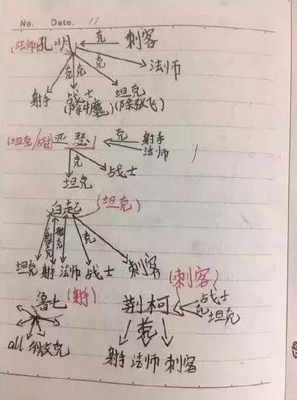 No. Date. 11
(法师)孔明 克 刺客
克 克 克 法师
射手 战士 坦克
(除 ) (除 飞)
(坦克/战) 亚瑟 克 射手
法师
克
坦克 战士
白起 (坦克)
克
坦克 射手 法师 战士 刺客
鲁七 (射) (刺客)
荆柯 克 战士
坦克
all 被克 克
射手 法师 刺客